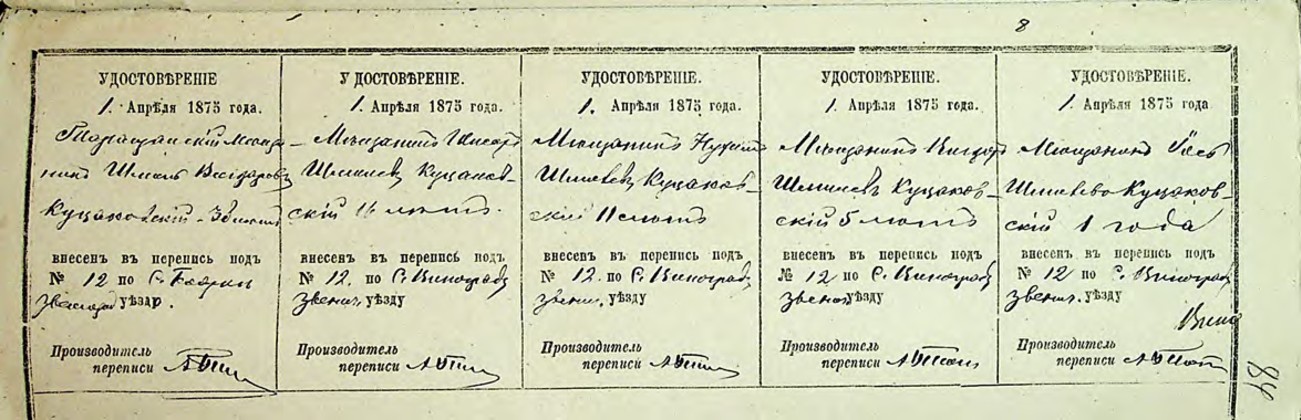 8
УДОСТОВѢРЕНІЕ
1. Апрѣля 1875 года.
Таращанскій Мѣща-
нинъ Шмиль Вигдоровъ
Куцаковскій
внесенъ въ перепись подъ
№ 12 по С.
Звенигор уѣзду.
Производитель
переписи
УДОСТОВѢРЕНІЕ.
1. Апрѣля 1875 года.
Мѣщанинъ
Шмилевъ Куцаков-
скій лѣтъ.
внесенъ въ перепись подъ
№ 12. по С. Виноградъ
Звениг. уѣзду
Производитель
переписи
УДОСТОВѢРЕНІЕ.
1. Апрѣля 1875 года.
Мѣщанинъ Нухимъ
Шмилевъ Куцаков-
скій 11 лѣтъ
внесенъ въ перепись подъ
№ 12. по С. Виноградъ
Звениг. уѣзду
Производитель
переписи
УДОСТОВѢРЕНІЕ.
1. Апрѣля 1875 года.
Мѣщанинъ Вигдоръ
Шмилевъ Куцаков-
скій 5 лѣтъ
внесенъ въ перепись подъ
№ 12 по С. Виноградъ
Звениг. уѣзду
Производитель
переписи
УДОСТОВѢРЕНІЕ.
1. Апрѣля 1875 года
Мѣщанинъ
Шмилево Куцаков-
скій 1 года
внесенъ въ перепись подъ
№ 12 по С. Виноградъ
Звениг. уѣзду
Производитель
переписи
84